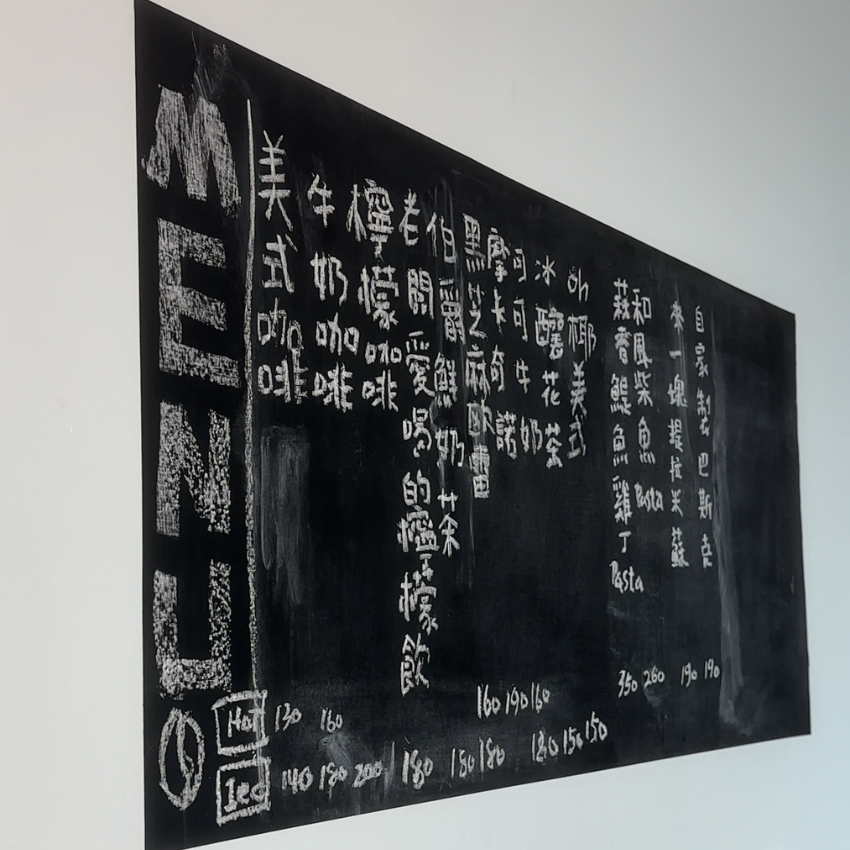 MENU
美式咖啡
牛奶咖啡
檸檬咖啡
老闆愛喝的檸檬飲
伯爵鮮奶茶
黑芝麻歐蕾
摩卡奇諾
可可牛奶
冰釀花茶
oh椰美式
蒜香鯷魚雞丁Pasta
和風柴魚Pasta
來一塊提拉米蘇
自家製巴斯克
Hot 130 160 160 190 160 350 260 190 190
Ice 140 180 200 180 180 180 180 150 150